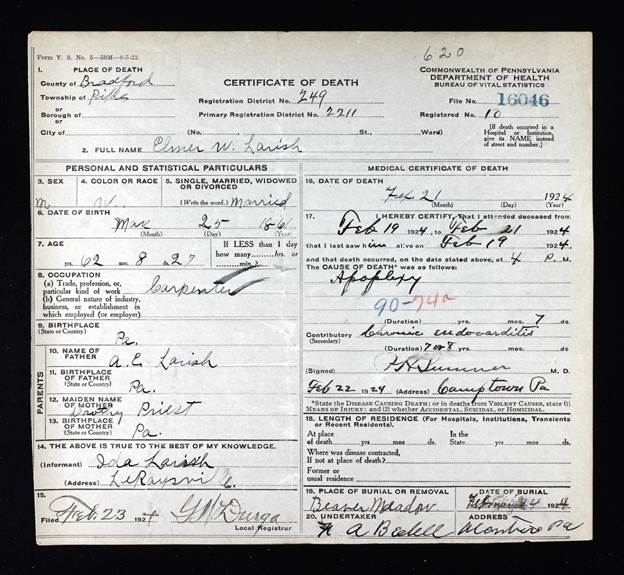 620
Form V. S. No. 5—50M—8-5-22.
1. PLACE OF DEATH
County of Bradford
Township of Pike
or
Borough of
or
City of (No. St., Ward)
CERTIFICATE OF DEATH
Registration District No. 249
Primary Registration District No. 2211
COMMONWEALTH OF PENNSYLVANIA
DEPARTMENT OF HEALTH
BUREAU OF VITAL STATISTICS
File No. 16046
Registered No. 10
[If death occurred in a Hospital or Institution, give its NAME instead of street and number.]
2. FULL NAME Elmer W. Larish
PERSONAL AND STATISTICAL PARTICULARS
3. SEX m
4. COLOR OR RACE W.
5. SINGLE, MARRIED, WIDOWED OR DIVORCED
(Write the word) Married
6. DATE OF BIRTH
May 25 1861
(Month) (Day) (Year)
7. AGE
If LESS than 1 day
how many hrs. or
min.?
yrs. 62 mos. 8 ds. 27
8. OCCUPATION
(a) Trade, profession, or
particular kind of work Carpenter
(b) General nature of industry,
business, or establishment in
which employed (or employer)
9. BIRTHPLACE
(State or Country)
Pa.
PARENTS
10. NAME OF
FATHER A. E. Larish
11. BIRTHPLACE
OF FATHER
(State or Country) Pa.
12. MAIDEN NAME
OF MOTHER Priest
13. BIRTHPLACE
OF MOTHER
(State or Country) Pa.
14. THE ABOVE IS TRUE TO THE BEST OF MY KNOWLEDGE.
(Informant) Ida Larish
(Address) LeRaysville
15.
Filed Feb. 23 1924
Local Registrar
MEDICAL CERTIFICATE OF DEATH
16. DATE OF DEATH
Feb 21 1924
(Month) (Day) (Year)
17. I HEREBY CERTIFY, That I attended deceased from
Feb 19 1924, to Feb 21 1924
that I last saw him alive on Feb 19 1924.
and that death occurred, on the date stated above, at 4 P. M.
The CAUSE OF DEATH* was as follows:
Apoplexy
90-74a
(Duration) yrs. mos. 7 ds
Contributory Chronic endocarditis
(Secondary)
(Duration) 7 or 8 yrs. mos. ds.
(Signed) Sumner M. D.
Feb 22 1924 (Address) Camptown Pa
*State the DISEASE CAUSING DEATH; or in deaths from VIOLENT CAUSES, state (1) MEANS OF INJURY; and (2) whether ACCIDENTAL, SUICIDAL, OR HOMICIDAL.
18. LENGTH OF RESIDENCE (For Hospitals, Institutions, Transients
or Recent Residents).
At place In the
of death. yrs mos ds. State yrs mos ds.
Where was disease contracted,
if not at place of death?
Former or
usual residence
19. PLACE OF BURIAL OR REMOVAL
Beaver Meadow
DATE OF BURIAL
24 1924
20. UNDERTAKER
A Bedell
ADDRESS
Pa